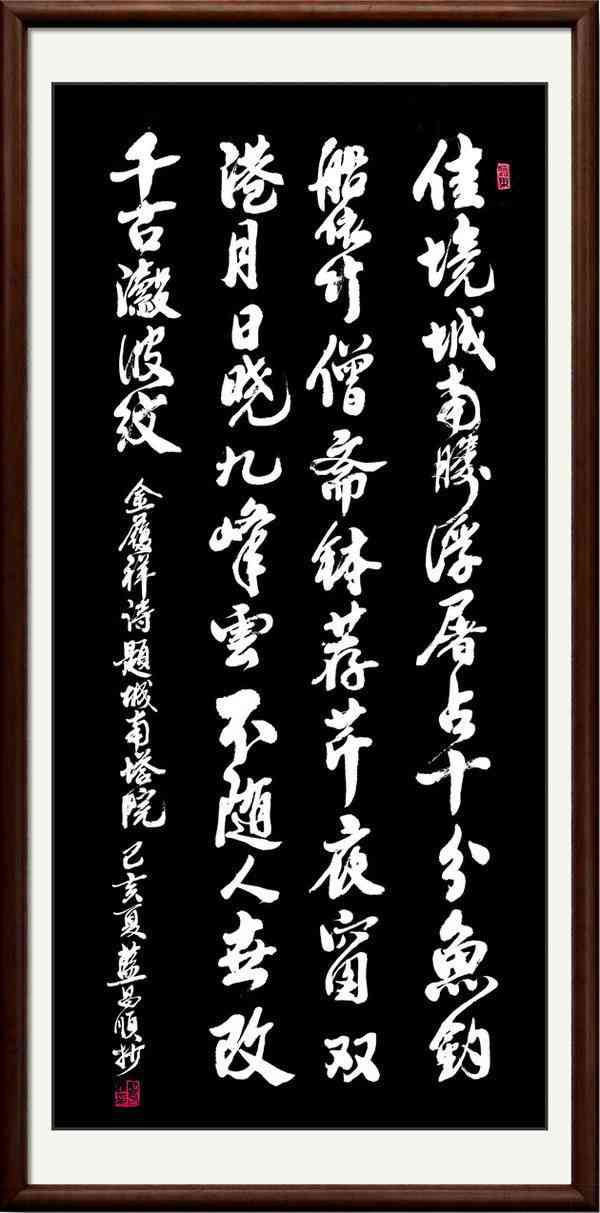 佳境城南勝浮屠占十分魚釣
船依竹僧斋缽荐芹夜窗双
港月日晓九峰雲不随人世改
千古瀲波紋
金履祥诗題城南塔院 己亥夏藍昌順抄